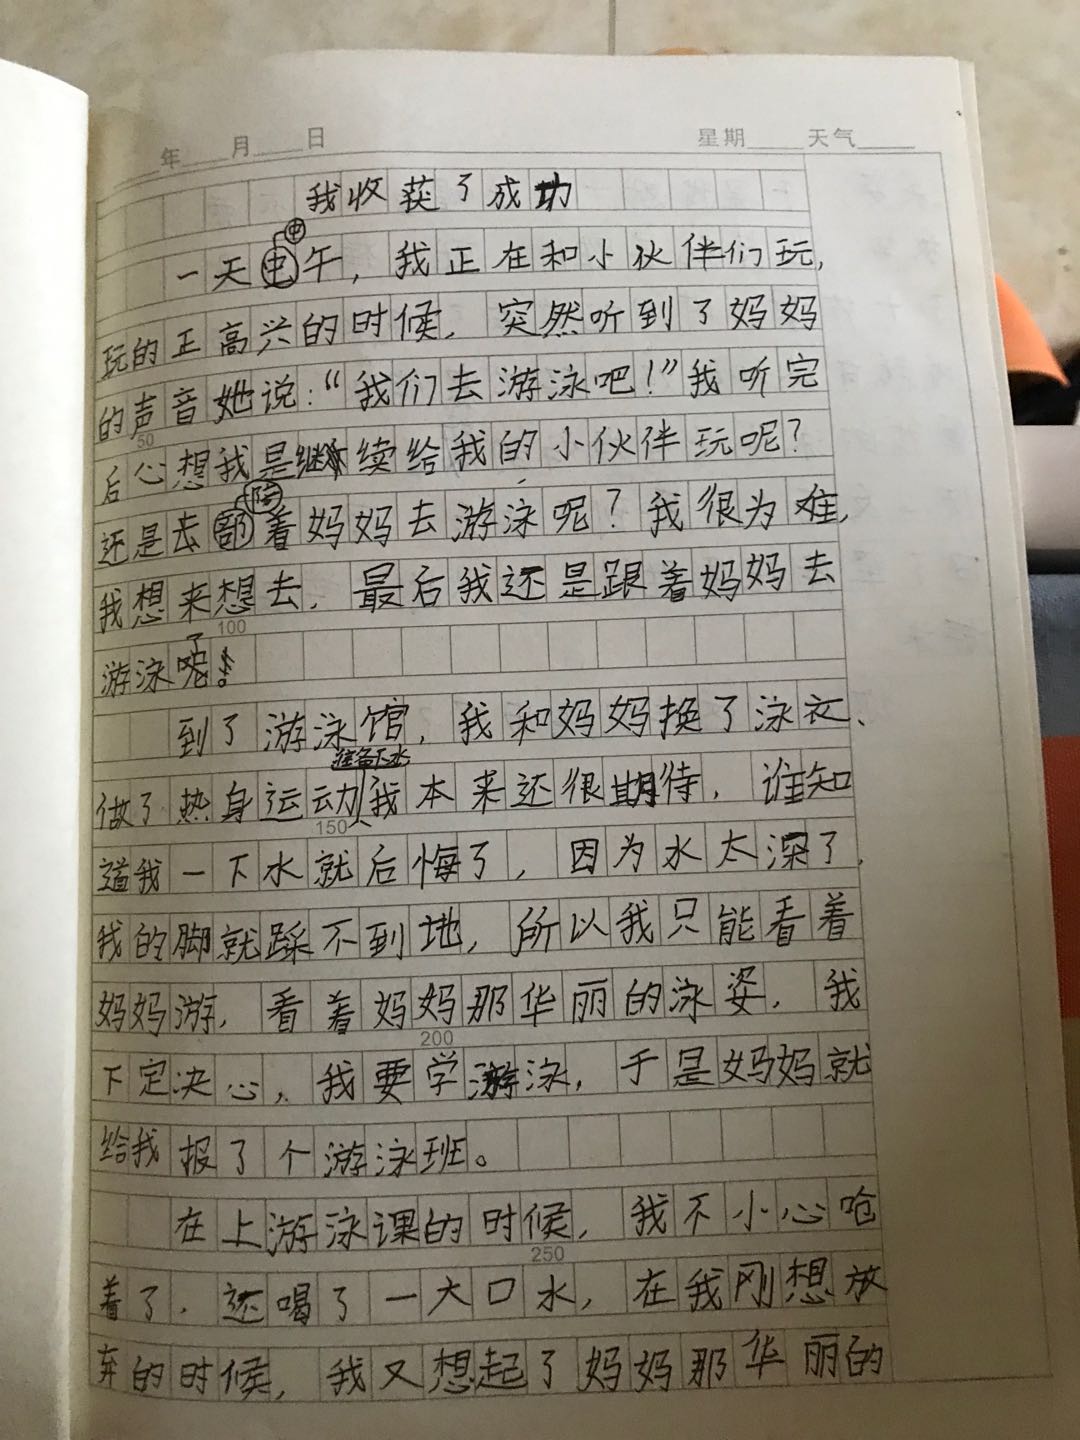 年 月 日 星期 天气
我收获了成功
中
一天中午，我正在和小伙伴们玩，
玩的正高兴的时候，突然听到了妈妈
的声音她说：“我们去游泳吧！”我听完
50
后心想我是继续给我的小伙伴玩呢？
陪
还是去部着妈妈去游泳呢？我很为难，
我想来想去，最后我还是跟着妈妈去
100
了
游泳呢！
到了游泳馆，我和妈妈换了泳衣、
准备下水
做了热身运动我本来还很期待，谁知
150
道我一下水就后悔了，因为水太深了，
我的脚就踩不到地，所以我只能看着
妈妈游，看着妈妈那华丽的泳姿，我
200
下定决心，我要学游泳，于是妈妈就
给我报了个游泳班。
在上游泳课的时候，我不小心呛
250
着了，还喝了一大口水，在我刚想放
弃的时候，我又想起了妈妈那华丽的